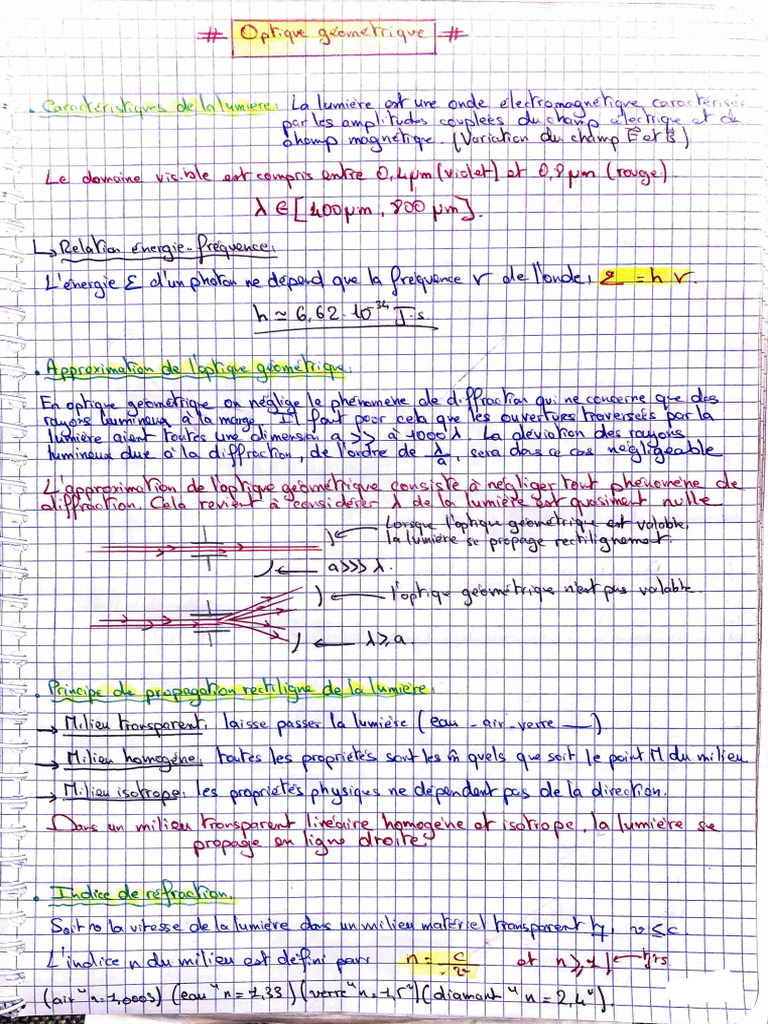 # Optique géometrique #
. Caracteristiques de la lumière: La lumière est une onde électromagnétique caractérisée
par les amplitudes couplées du champ électrique et du
champ magnétique. (Variation du champ E et B)
Le domaine visible est compris entre 0,4μm (violet) et 0,8μm (rouge).
λ ∈ [400μm, 800μm].
↳ Relation énergie-fréquence:
L'énergie ε d'un photon ne dépend que la fréquence ν de l'onde, ε = h ν.
h ≃ 6,62.10^34 J.s
. Approximation de l'optique géométrique.
En optique géométrique on néglige le phénomène de diffraction qui ne concerne que des
rayons lumineux à la marge. Il faut pour cela que les ouvertures traversées par la
lumière aient toutes une dimension a >> à 1000λ. La déviation des rayons
lumineux due à la diffraction, de l'ordre de λ/a, sera dans ce cas négligeable
L'approximation de l'optique géométrique consiste à négliger tout phénomène de
diffraction. Cela revient à considérer λ de la lumière est quasiment nulle
Lorsque l'optique géométrique est valable,
la lumière se propage rectilignement.
a>>>λ.
l'optique géométrique n'est pas valable
λ⩾a.
. Principe de propagation rectiligne de la lumière:
→ Milieu transparent: laisse passer la lumière (eau - air - verre __)
→ Milieu homogène: toutes les propriétés sont les m̂ quels que soit le point M du milieu
→ Milieu isotrope: les propriétés physiques ne dépendent pas de la direction.
Dans un milieu transparent linéaire homogène et isotrope, la lumière se
propage en ligne droite.
. Indice de réfraction.
Soit v la vitesse de la lumière dans un milieu matériel transparent v ≤ c.
L'indice n du milieu est défini par n = c/v et n ⩾ 1 ← tjrs
(air "n=1,0003) (eau "n=1,33) (verre "n=1,5") (diamant "n=2,4").